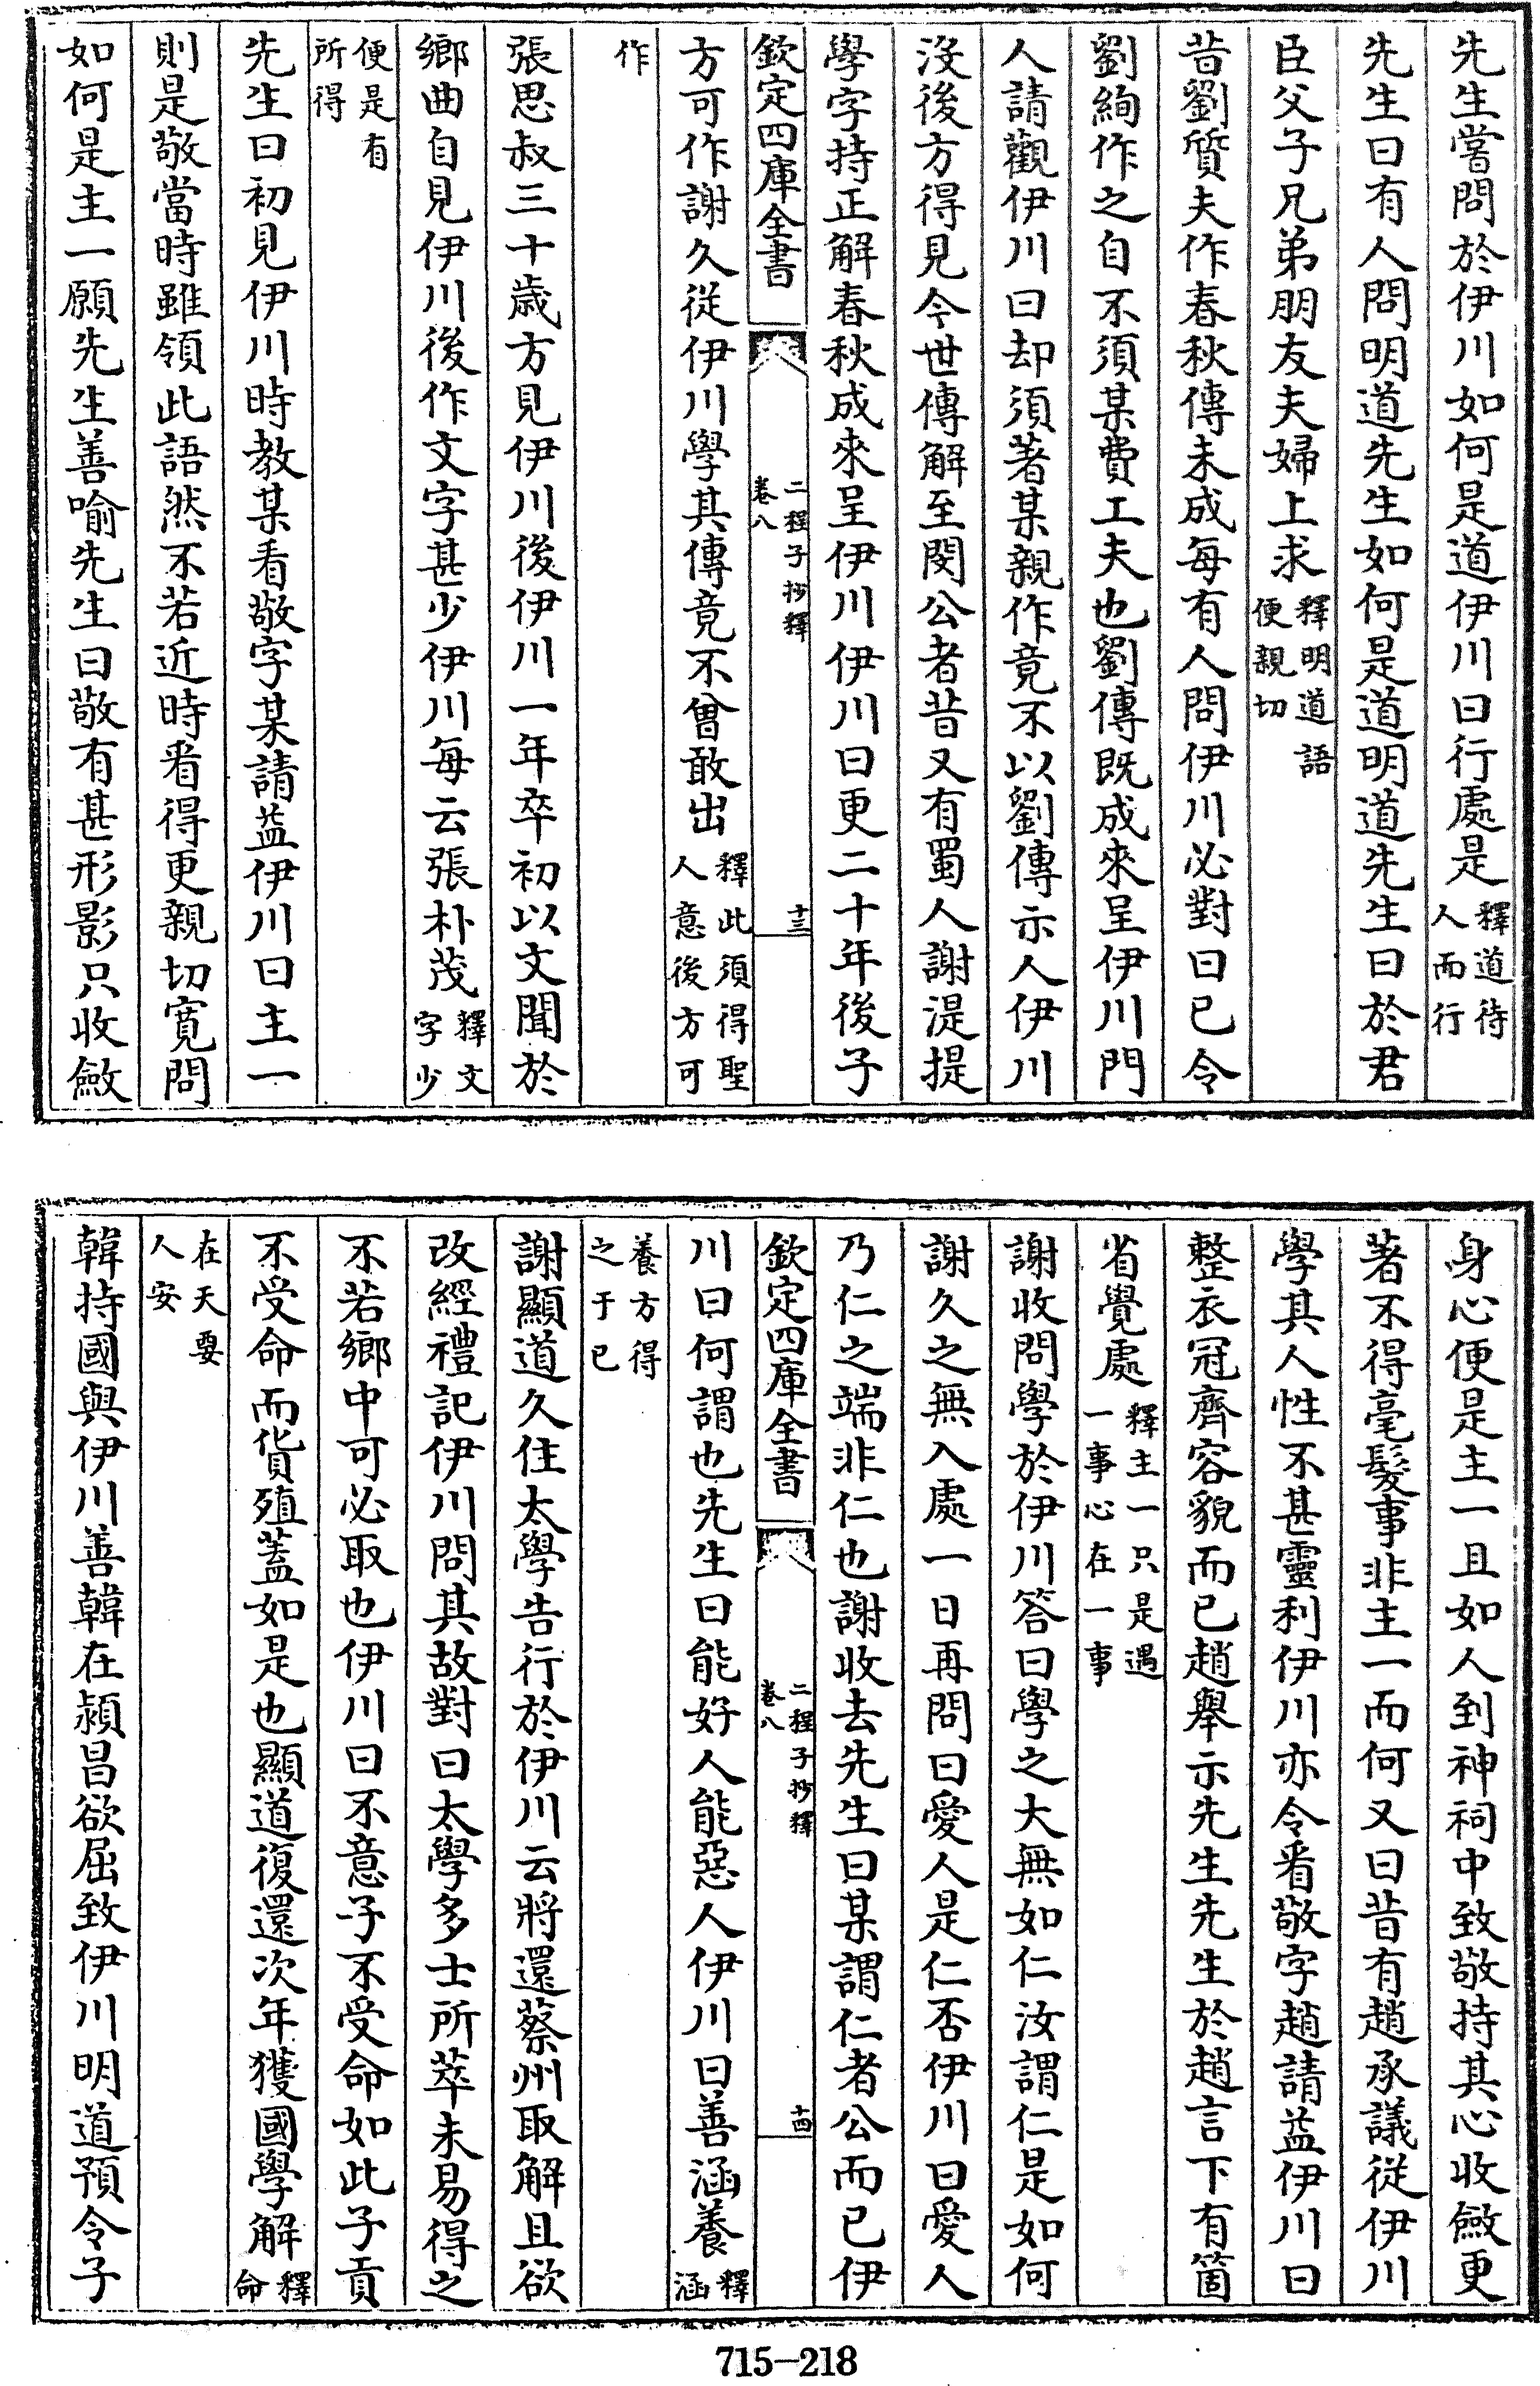 先生嘗問於伊川如何是道伊川曰行處是釋道待人而行
先生曰有人問明道先生如何是道明道先生曰於君
臣父子兄弟朋友夫婦上求釋明道語便親切
昔劉質夫作春秋傳未成每有人問伊川必對曰已令
劉絢作之自不須某費工夫也劉傳既成來呈伊川門
人請觀伊川曰却須著某親作竟不以劉傳示人伊川
沒後方得見今世傳解至閔公者昔又有蜀人謝湜提
學字持正解春秋成來呈伊川伊川曰更二十年後子
欽定四庫全書 二程子抄釋卷八 十三
方可作謝久從伊川學其傳竟不曾敢出釋此須得聖人意後方可
作
張思叔三十歲方見伊川後伊川一年卒初以文聞於
鄉曲自見伊川後作文字甚少伊川每云張朴茂釋文字少
便是有所得
先生曰初見伊川時教某看敬字某請益伊川曰主一
則是敬當時雖領此語然不若近時看得更親切寬問
如何是主一願先生善喻先生曰敬有甚形影只收斂
身心便是主一且如人到神祠中致敬持其心收斂更
著不得毫髮事非主一而何又曰昔有趙承議從伊川
學其人性不甚靈利伊川亦令看敬字趙請益伊川曰
整衣冠齊容貌而已趙舉示先生先生於趙言下有箇
省覺處釋主一只是遇一事心在一事
謝收問學於伊川答曰學之大無如仁汝謂仁是如何
謝久之無入處一日再問曰愛人是仁否伊川曰愛人
乃仁之端非仁也謝收去先生曰某謂仁者公而已伊
欽定四庫全書 二程子抄釋卷八 十四
川曰何謂也先生曰能好人能惡人伊川曰善涵養釋涵
養方得之于已
謝顯道久住太學告行於伊川云將還蔡州取解且欲
改經禮記伊川問其故對曰太學多士所萃未易得之
不若鄉中可必取也伊川曰不意子不受命如此子貢
不受命而貨殖蓋如是也顯道復還次年獲國學解釋命
在天要人安
韓持國與伊川善韓在潁昌欲屈致伊川明道預令子
715-218